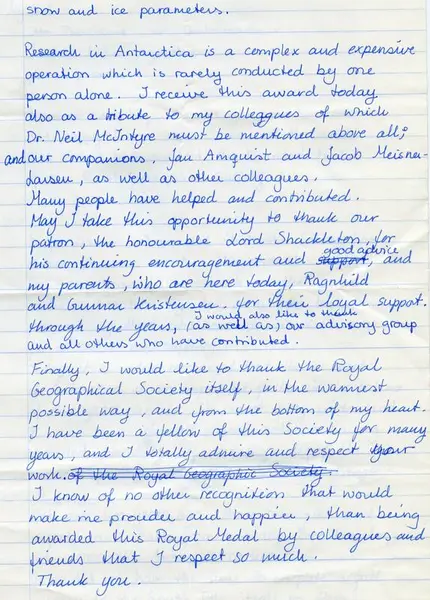 snow and ice parameters.
Research in Antarctica is a complex and expensive
operation which is rarely conducted by one
person alone. I receive this award today
also as a tribute to my colleagues of which
Dr. Neil McIntyre must be mentioned above all,
and our companions, Jan Amquist and Jacob Meisner-
Larsen, as well as other colleagues.
Many people have helped and contributed.
May I take this opportunity to thank our
patron, the honourable Lord Shackleton, for
good advice
his continuing encouragement and support, and
my parents, who are here today, Ragnhild
and Gunnar Kristensen. for their loyal support.
I would also like to thank
through the years, (as well as) our advisory group
and all others who have contributed.
Finally, I would like to thank the Royal
Geographical Society itself, in the warmest
possible way, and from the bottom of my heart.
I have been a fellow of this Society for many
years, and I totally admire and respect your
work. of the Royal Geographic Society.
I know of no other recognition that would
make me prouder and happier, than being
awarded this Royal Medal by colleagues and
friends that I respect so much.
Thank you.